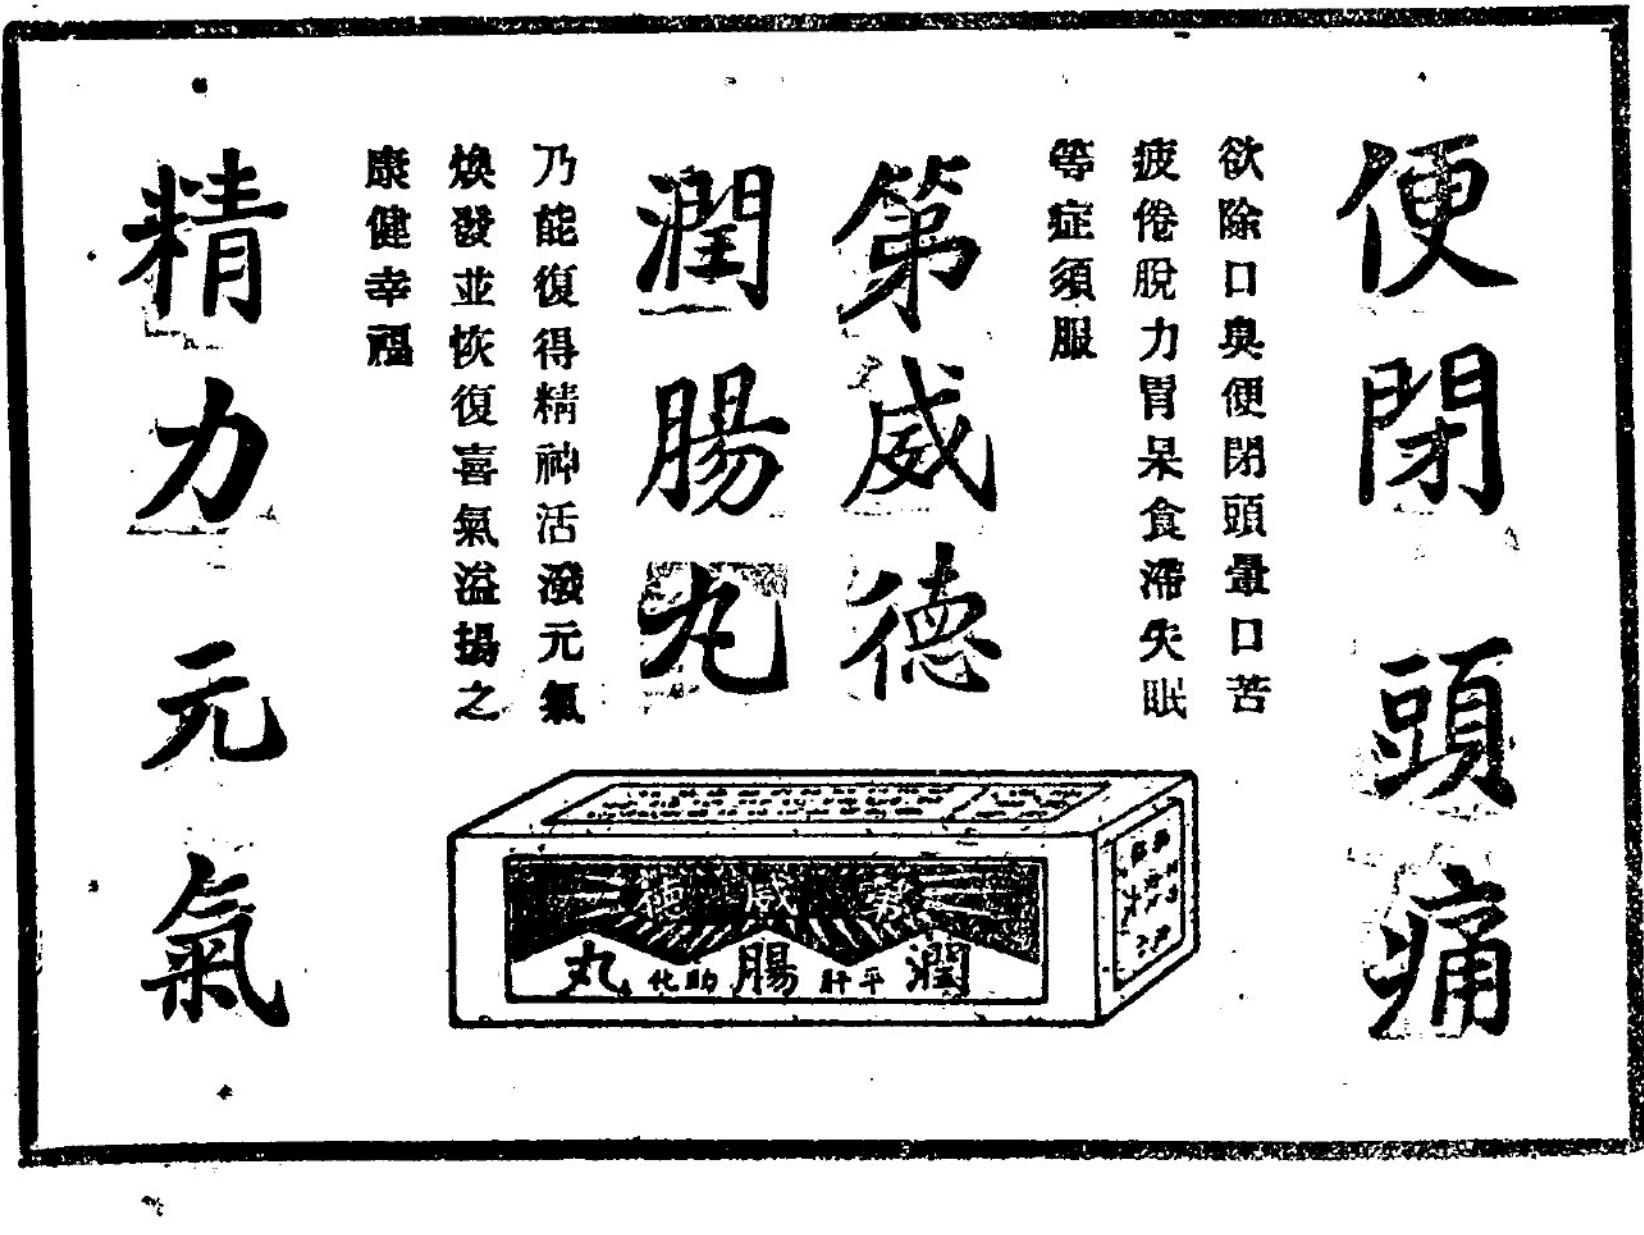 便閉頭痛
欲除口臭便閉頭暈口苦
疲倦脫力胃呆食滯失眠
等症須服
第威德
潤腸丸
乃能復得精神活潑元氣
煥發並恢復喜氣溢揚之
康健幸福
精力元氣
第威德
潤平肝腸助化丸